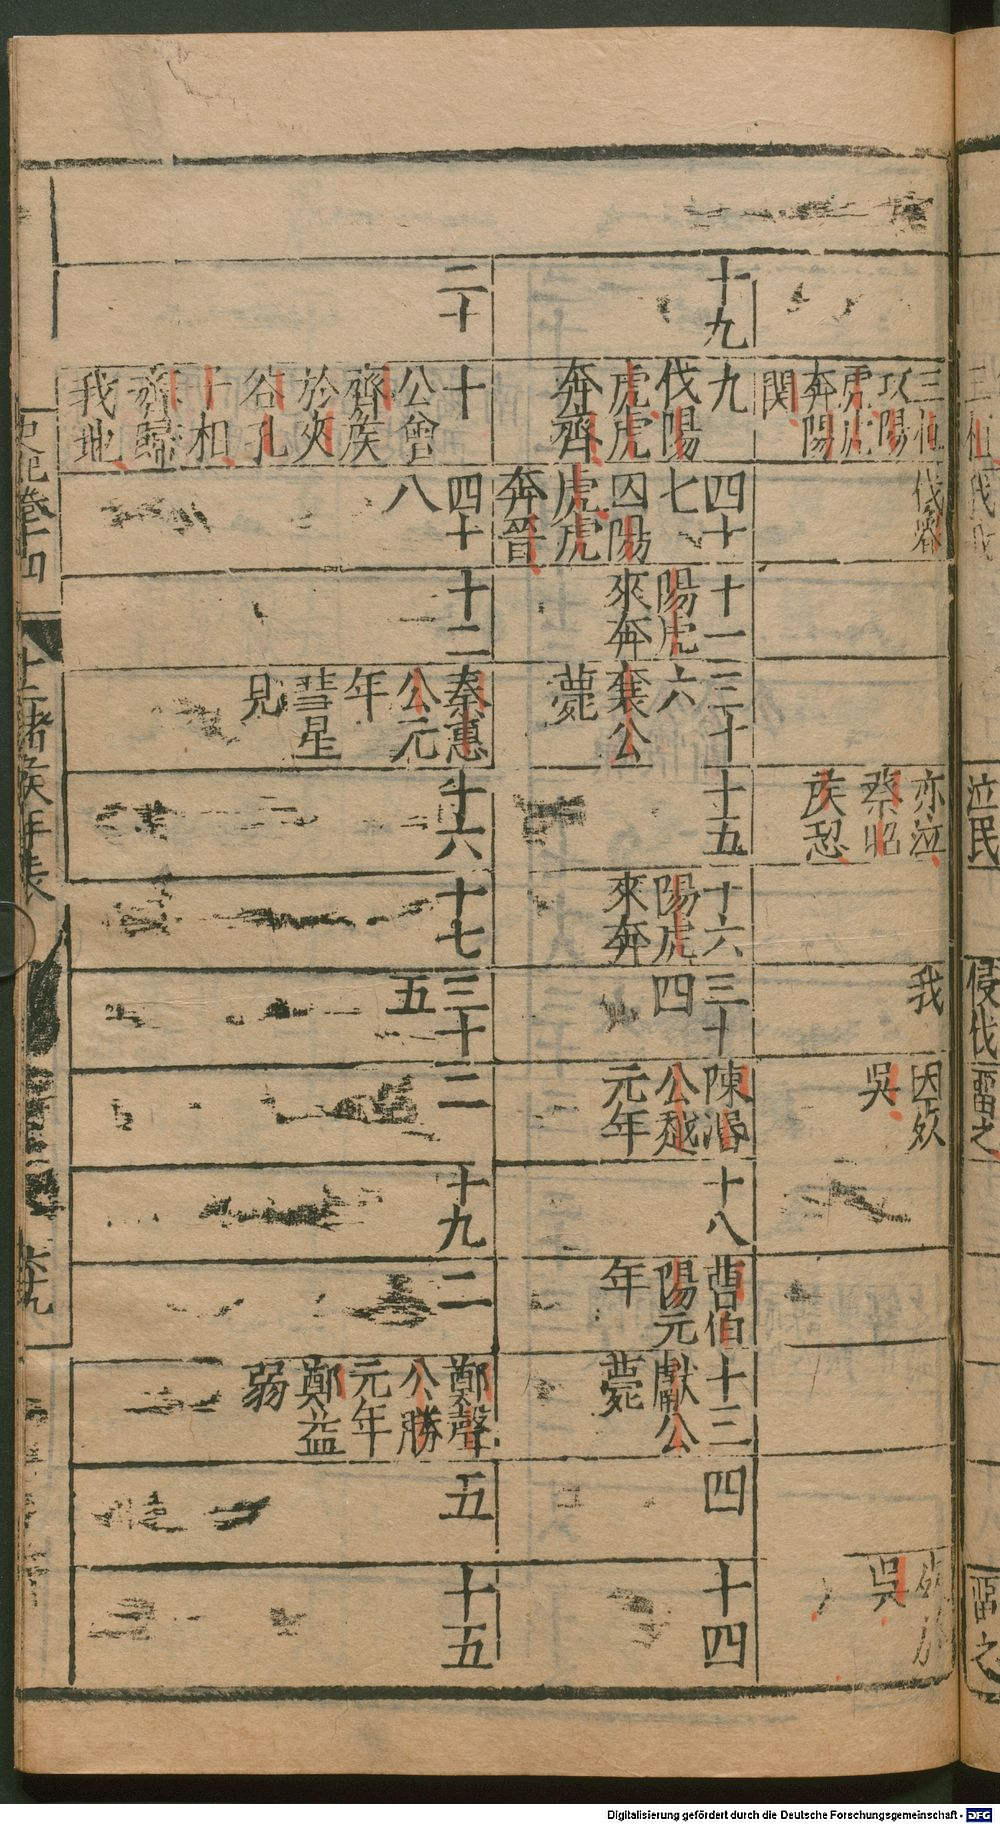 三桓
攻陽
虎虎
奔陽
関
伐魯
亦泣
蔡昭
侯恐
我
因欬
吳
吳
十九
九
伐陽
虎虎
奔齊
四十
七
囚陽
虎虎
奔晉
十一
陽虎
來奔
三十
六
襄公
薨
十五
十六
陽虎
來奔
三十
四
陳湣
公越
元年
十八
曹伯
陽元
年
十三
獻公
薨
四
十四
二十
十
公會
齊侯
於夾
谷孔
子相
齊歸
我地
四十
八
十二
秦惠
公元
年
彗星
見
十六
十七
三十
五
二
十九
二
鄭聲
公勝
元年
鄭益
弱
五
十五
史記卷十四
十二諸侯年表
六九
三桓
伐我
泣民
侵伐
畱之
畱之
Digitalisierung gefördert durch die Deutsche Forschungsgemeinschaft - DFG